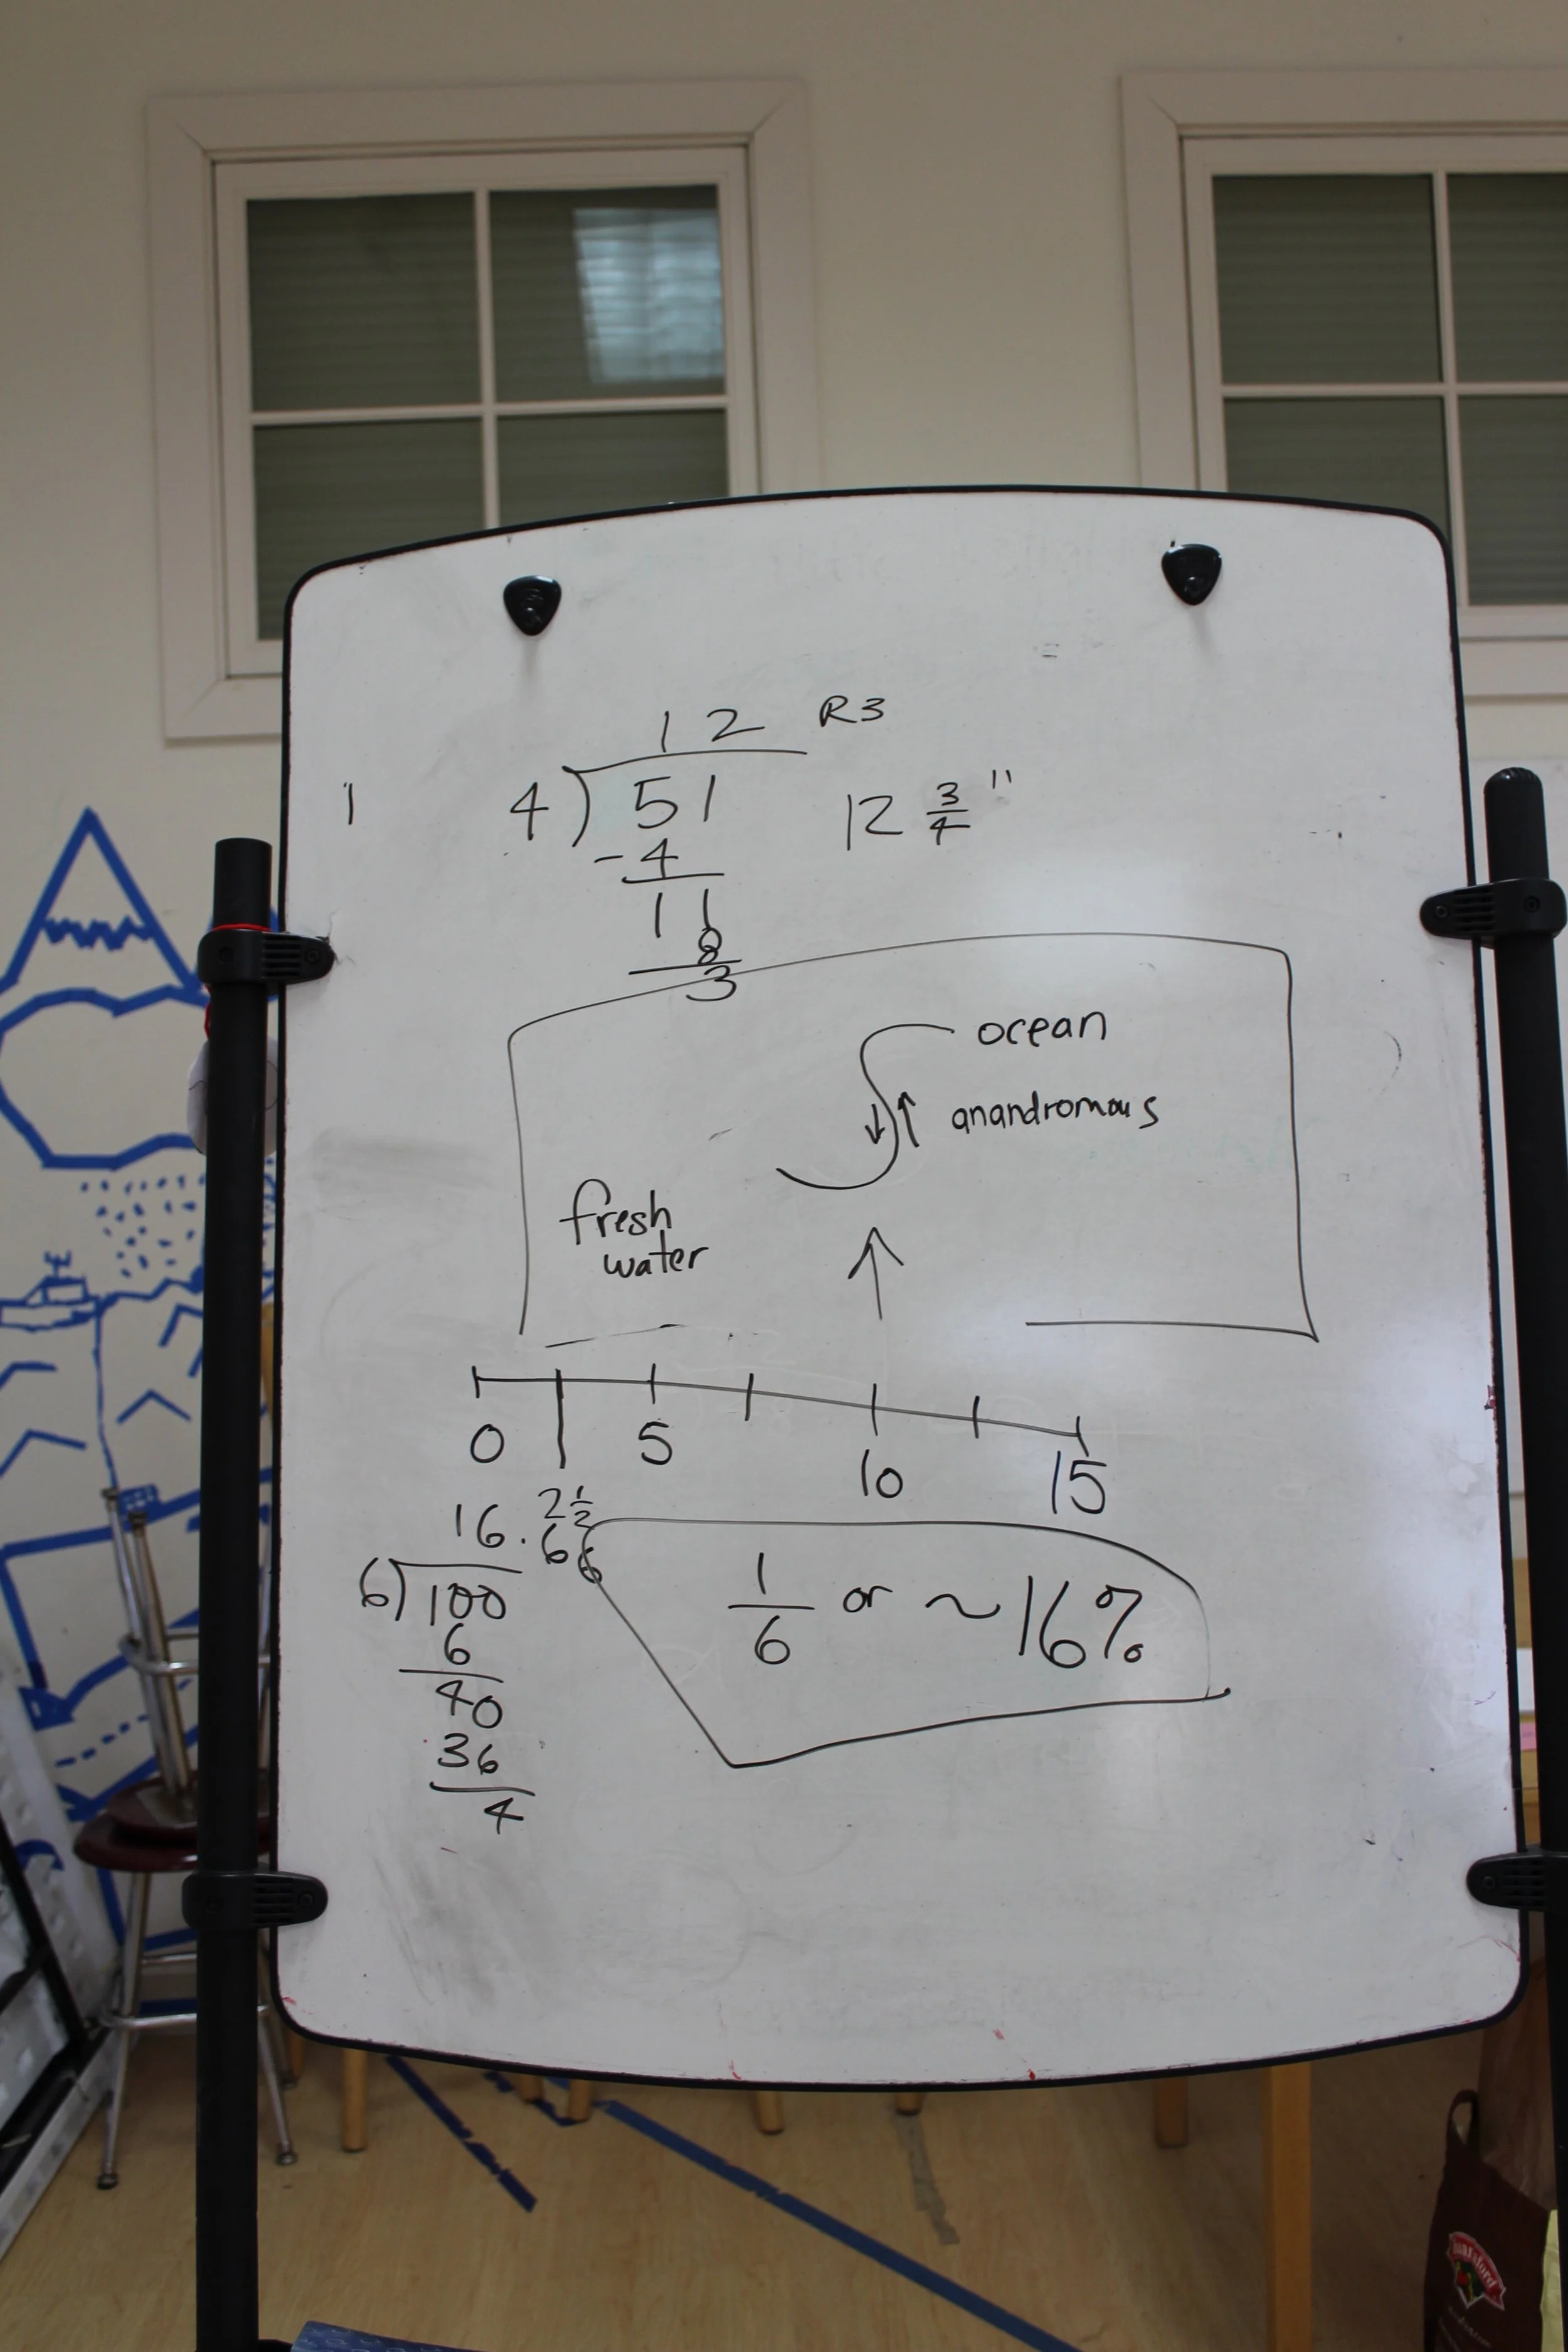 12 R3
1
4)51
12 3/4"
-4
11
8
3
ocean
anandromous
fresh
water
0 5 10 15
2 1/2
16.66
6)100
6
40
36
4
1/6 or ~16%